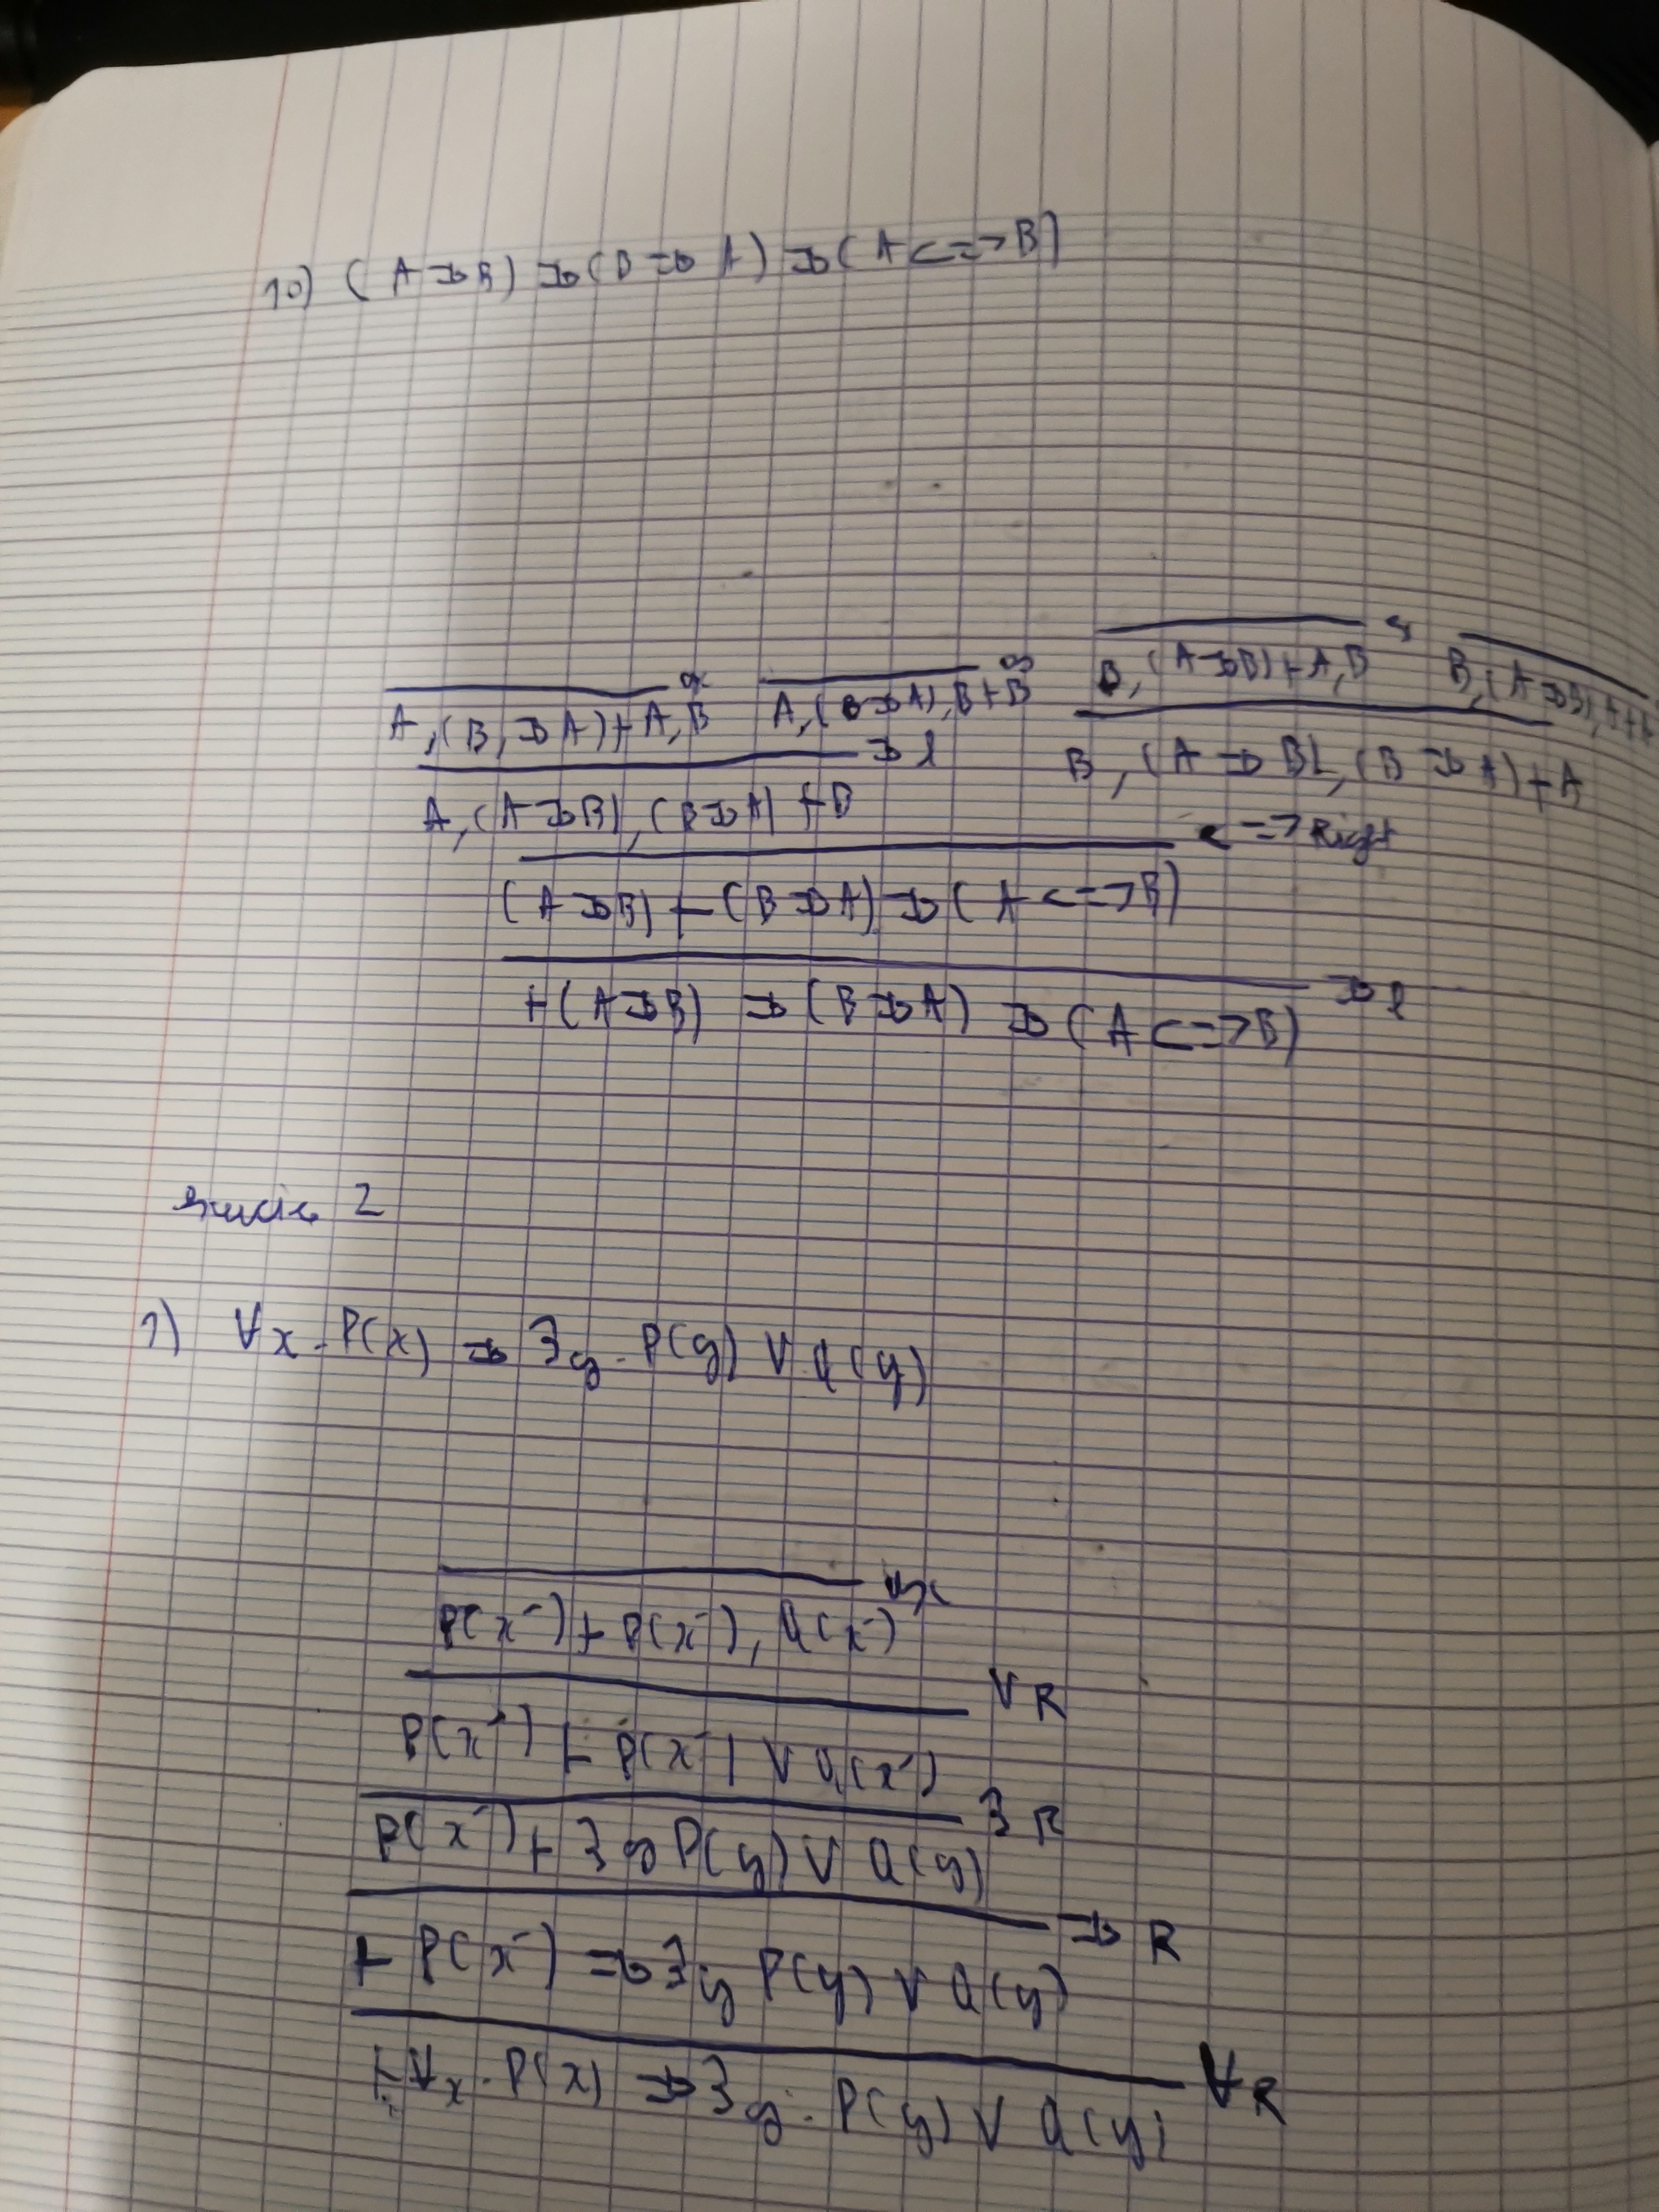 10) (A ⇒ B) ⇒ (B ⇒ A) ⇒ (A <=> B)
A, (B, ⇒ A) ⊢ A, B ax A, (B ⇒ A), B ⊢ B ax B, (A ⇒ B) ⊢ A, B B, (A ⇒ B),
A, (A ⇒ B), (B ⇒ A) ⊢ B ⇒ l B, (A ⇒ B), (B ⇒ A) ⊢ A
(A ⇒ B) ⊢ (B ⇒ A) ⇒ (A <=> B) <=> Right
⊢ (A ⇒ B) ⇒ (B ⇒ A) ⇒ (A <=> B) ⇒ l
Exercice 2
1) ∀x . P(x) ⇒ ∃y . P(y) ∨ Q(y)
P(x⁻) ⊢ P(x⁻), Q(x⁻) ax
P(x⁻) ⊢ P(x⁻) ∨ Q(x⁻) ∨ R
P(x⁻) ⊢ ∃y P(y) ∨ Q(y) ∃ R
⊢ P(x⁻) ⇒ ∃y P(y) ∨ Q(y) ⇒ R
⊢ ∀x . P(x) ⇒ ∃y . P(y) ∨ Q(y) ∀R